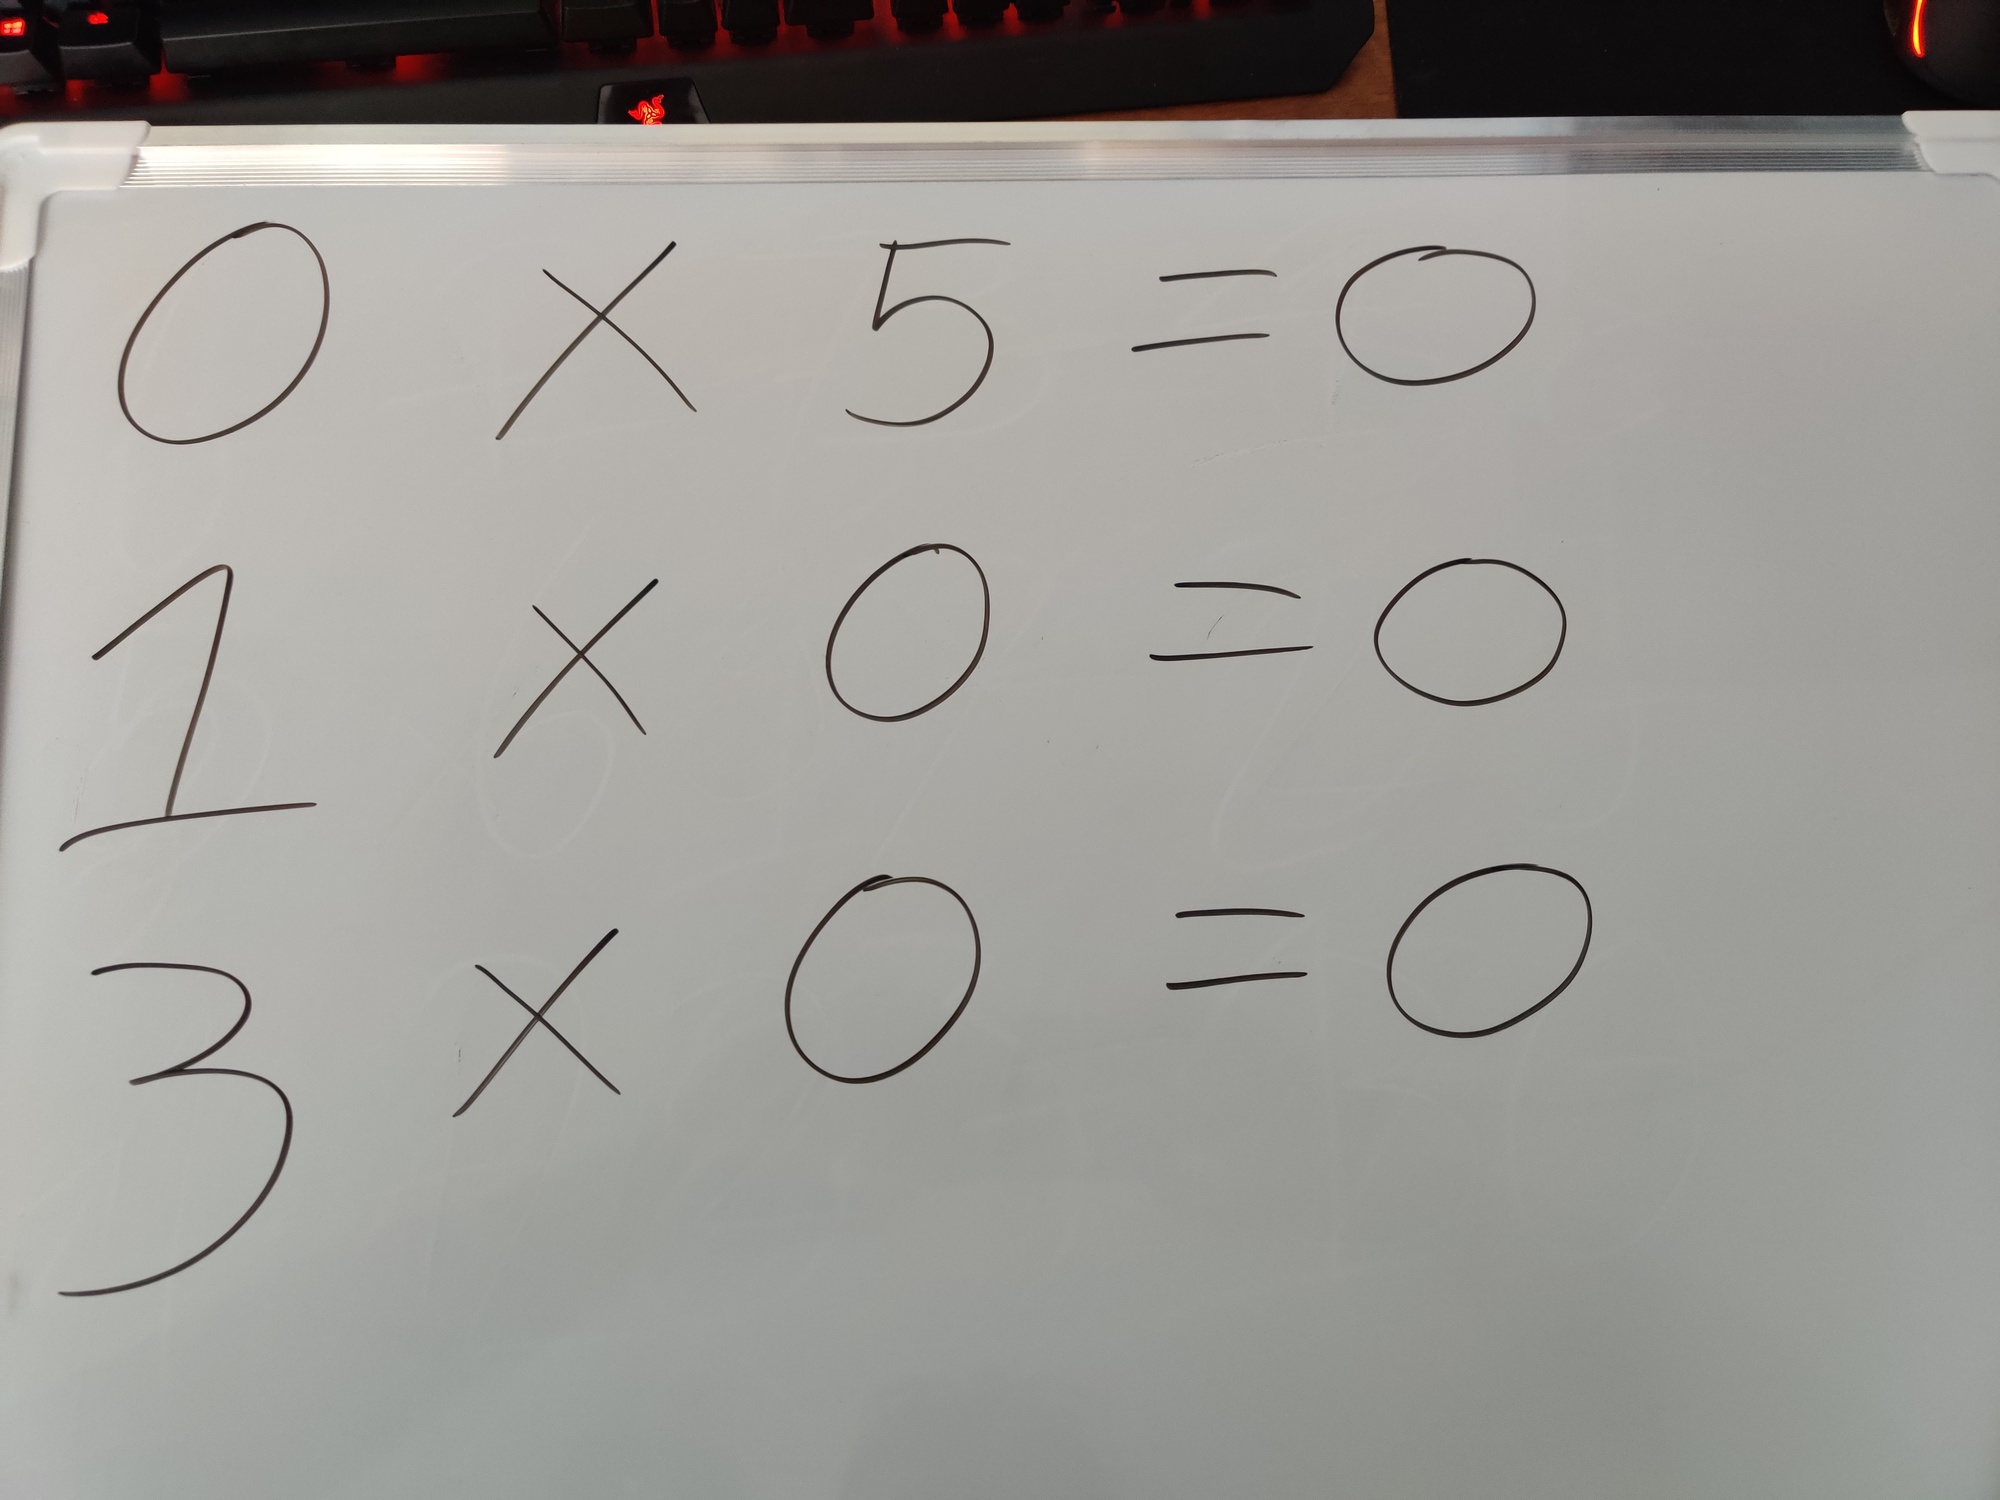 0 × 5 = 0
1 × 0 = 0
3 × 0 = 0